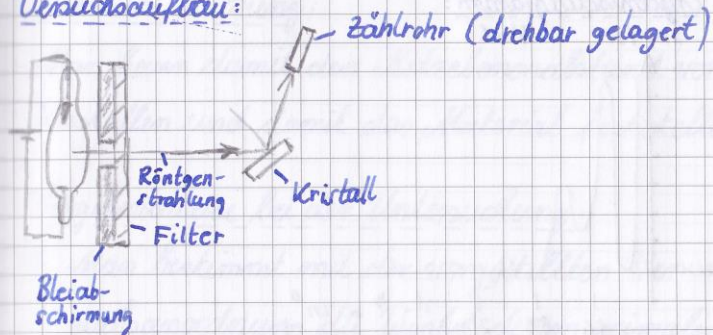 Versuchsaufbau:
Zählrohr (drehbar gelagert)
Röntgen-
strahlung
Kristall
Filter
Bleiab-
schirmung